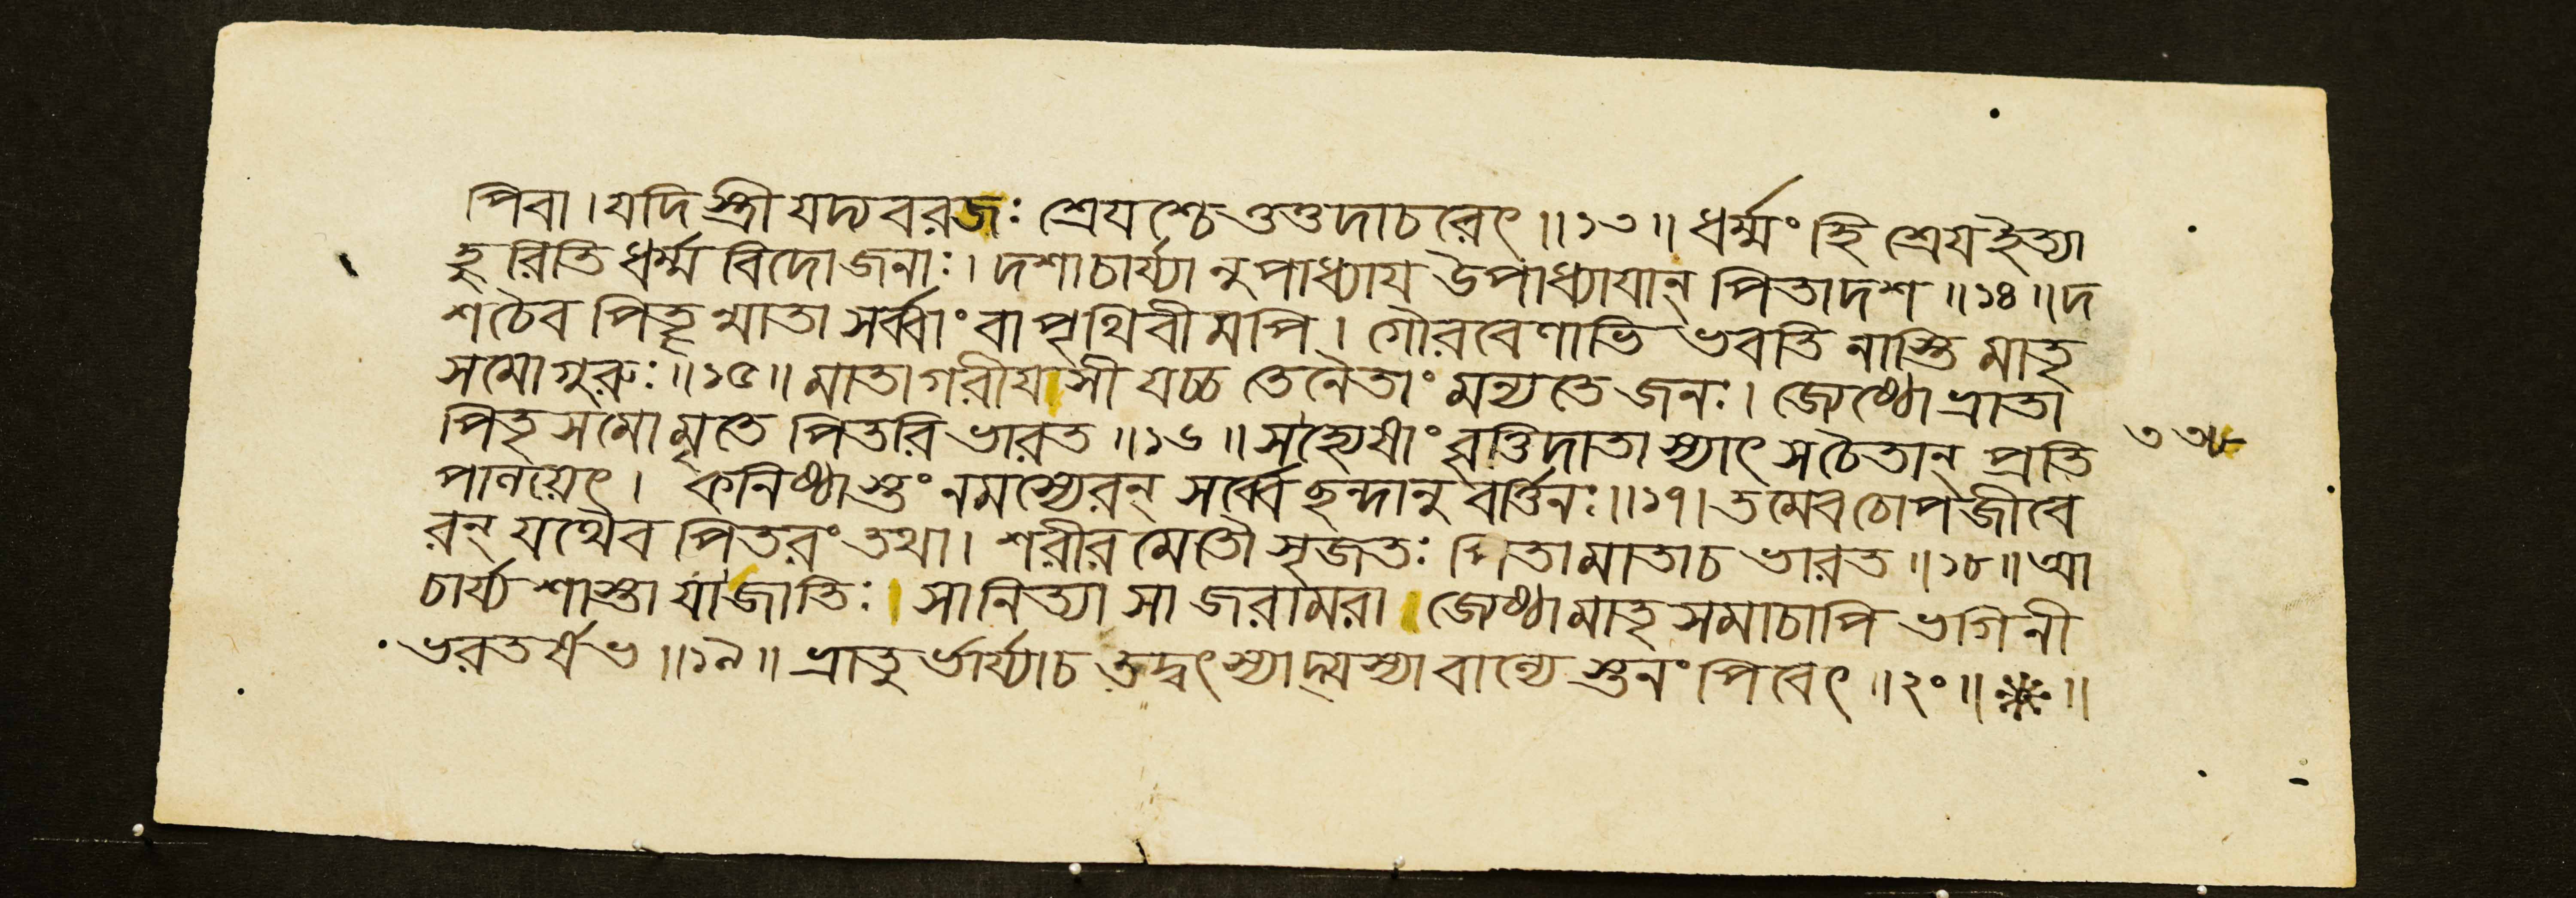 পিবা।যদি স্ত্রী যদ্যবরজঃ শ্রেযশ্চেত্তত্তদাচরেৎ॥১৩॥ধর্ম্মং হি শ্রেয ইত্যা
হুরিতি ধর্ম্মবিদোজনাঃ।দশাচার্য্যানুপাধ্যায উপাধ্যাযান্ পিতাদশ॥১৪॥দ
শচৈব পিতৄন্মাতা সর্ব্বাং বা পৃথিবীমপি।গৌরবেণাভিভবতি নাস্তি মাতৃ
সমোগুরুঃ॥১৫॥মাতাগরীযসী যচ্চ তেনৈতাং মন্যতে জনঃ।জ্যেষ্ঠোভ্রাতা
পিতৃসমোমৃতে পিতরি ভারত॥১৬॥সহ্যেষাং বৃত্তিদাতাস্যাৎ সচৈতান্ প্রতি
৩৩৮
পালয়েৎ। কনিষ্ঠাস্তং নমস্যেরন্ সর্ব্বে ছন্দানুবর্ত্তিনঃ॥১৭।তমেবচোপজীবে
রন্ যথৈব পিতরং তথা।শরীরমেতৌ সৃজতঃ পিতামাতাচ ভারত॥১৮॥আ
চার্য্য শাস্তা যাজাতিঃ।সানিত্যা সাজরামরা।জ্যেষ্ঠামাতৃসমাচাপি ভগিনী
ভরতর্ষভ॥১৯॥ভ্রাতুর্ভার্য্যাচ তদ্বৎস্যাদ্যস্যাবাল্যে স্তনং পিবেৎ॥২০॥